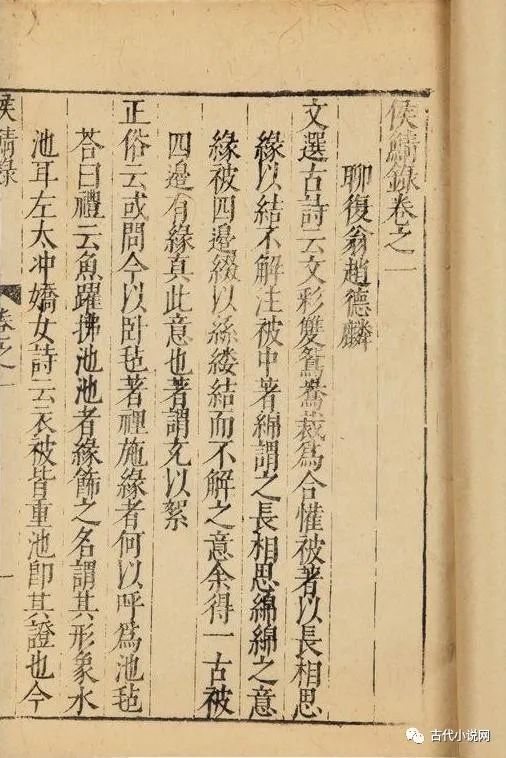 侯鯖錄卷之一
聊復翁趙德麟
文選古詩云文彩雙鴛鴦裁為合懽被著以長相思
緣以結不解注被中著綿謂之長相思綿綿之意
緣被四邊綴以絲縷結而不解之意余得一古被
四邊有緣真此意也著謂充以絮
正俗云或問今以卧毡著裡施緣者何以呼為池毡
荅曰禮云魚躍拂池池者緣飾之名謂其形象水
池耳左太冲嬌女詩云衣被皆重池即其證也今
侯鯖錄
卷之一
一
古代小说网